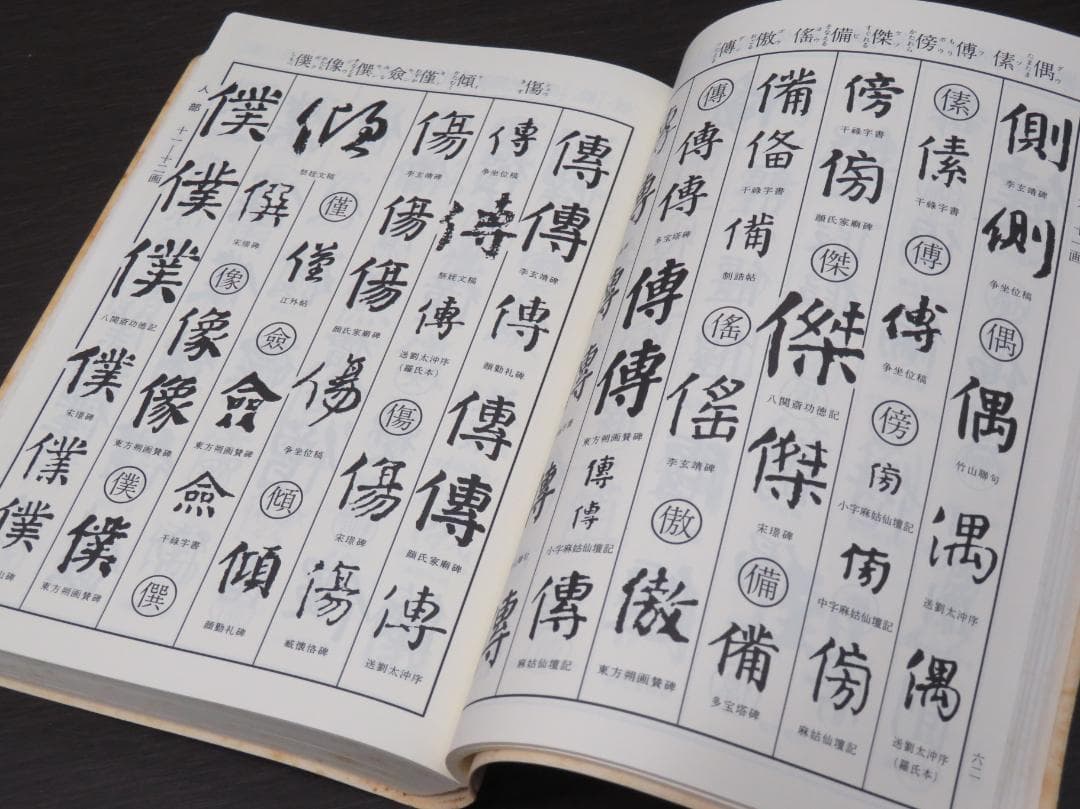 偶 傃 傅 傍 傑 備 傜 傲 傳
側
李玄靖碑
側
争坐位稿
偶
偶
竹山聯句
偶
送劉太沖序
偶
送劉太沖序
(羅氏本)
傃
傃
干祿字書
傅
傅
争坐位稿
傍
傍
小字麻姑仙壇記
傍
中字麻姑仙壇記
傍
麻姑仙壇記
傍
干祿字書
傍
顔氏家廟碑
傑
傑
八関斎功徳記
傑
宋璟碑
備
備
多宝塔碑
備
備
干祿字書
備
制誥帖
傜
傜
李玄靖碑
傲
傲
東方朔画賛碑
傳
傳
傳
多宝塔碑
傳
傳
東方朔画賛碑
傳
傳
小字麻姑仙壇記
傳
麻姑仙壇記
六二
傷 傾 僅 僉 僎 像 僕
人部 十一-十二画
傳
傳
李玄靖碑
傳
顔勤礼碑
傳
傳
顔氏家廟碑
傳
送劉太沖序
傳
争坐位稿
傳
祭姪文稿
傳
送劉太沖序
(羅氏本)
傷
傷
宋璟碑
傷
臧懐恪碑
傷
李玄靖碑
傷
傷
顔氏家廟碑
傷
争坐位稿
傾
傾
顔勤礼碑
傾
祭姪文稿
僅
僅
江外帖
僉
僉
東方朔画賛碑
僉
干祿字書
僎
僎
宋璟碑
像
像
像
東方朔画賛碑
僕
僕
東方朔画賛碑
僕
僕
僕
八関斎功徳記
僕
宋璟碑
僕
僕